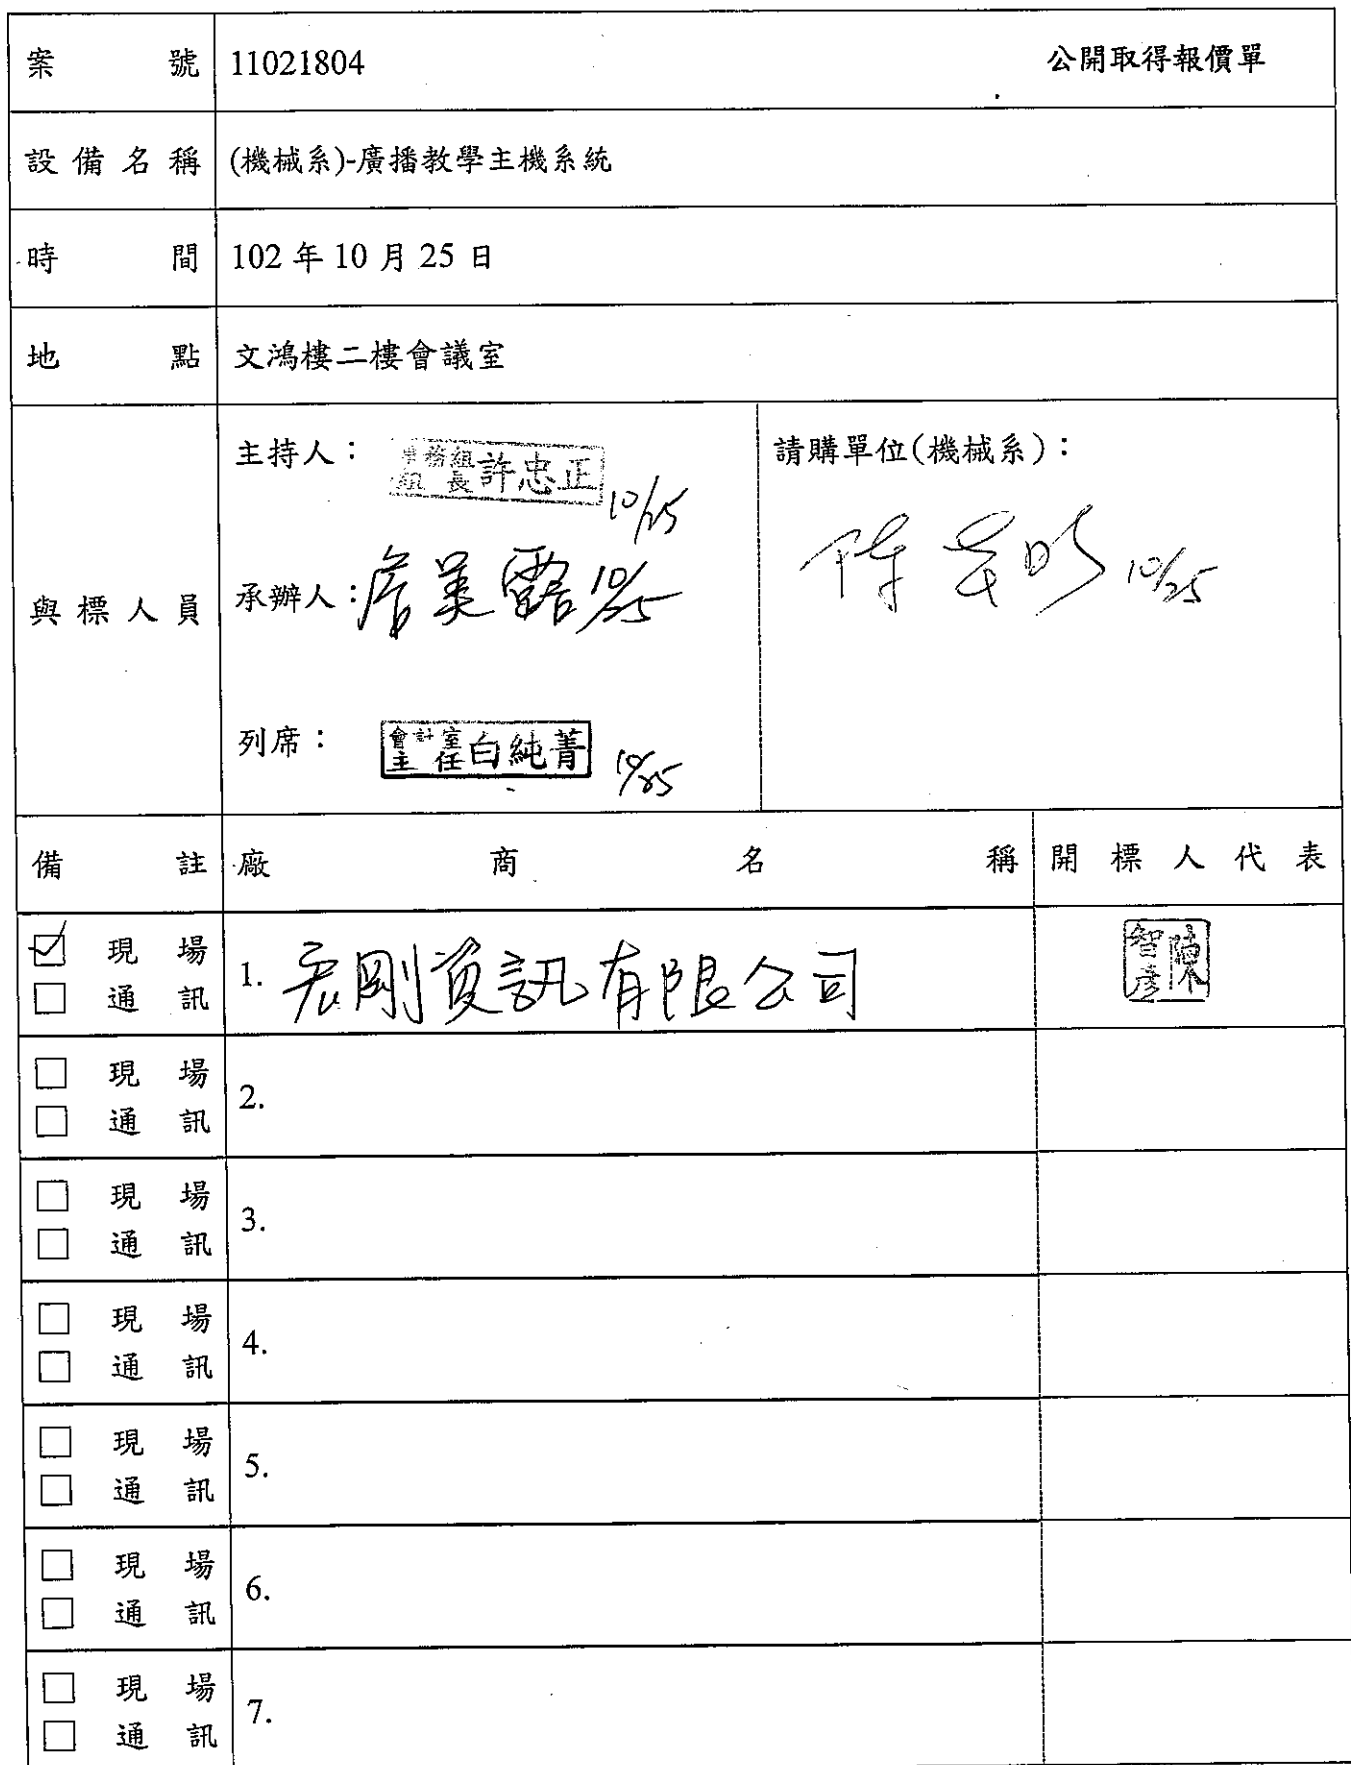 案號 11021804 公開取得報價單
設備名稱 (機械系)-廣播教學主機系統
時間 102 年 10 月 25 日
地點 文鴻樓二樓會議室
與標人員
主持人： 事務組組長 許忠正 10/25
承辦人：詹美露 10/25
列席： 會計室主任 白純菁 10/25
請購單位(機械系)：
10/25
備註 廠商名稱 開標人代表
☑ 現場
□ 通訊
1. 宏剛資訊有限公司
陳智彥
□ 現場
□ 通訊
2.
□ 現場
□ 通訊
3.
□ 現場
□ 通訊
4.
□ 現場
□ 通訊
5.
□ 現場
□ 通訊
6.
□ 現場
□ 通訊
7.